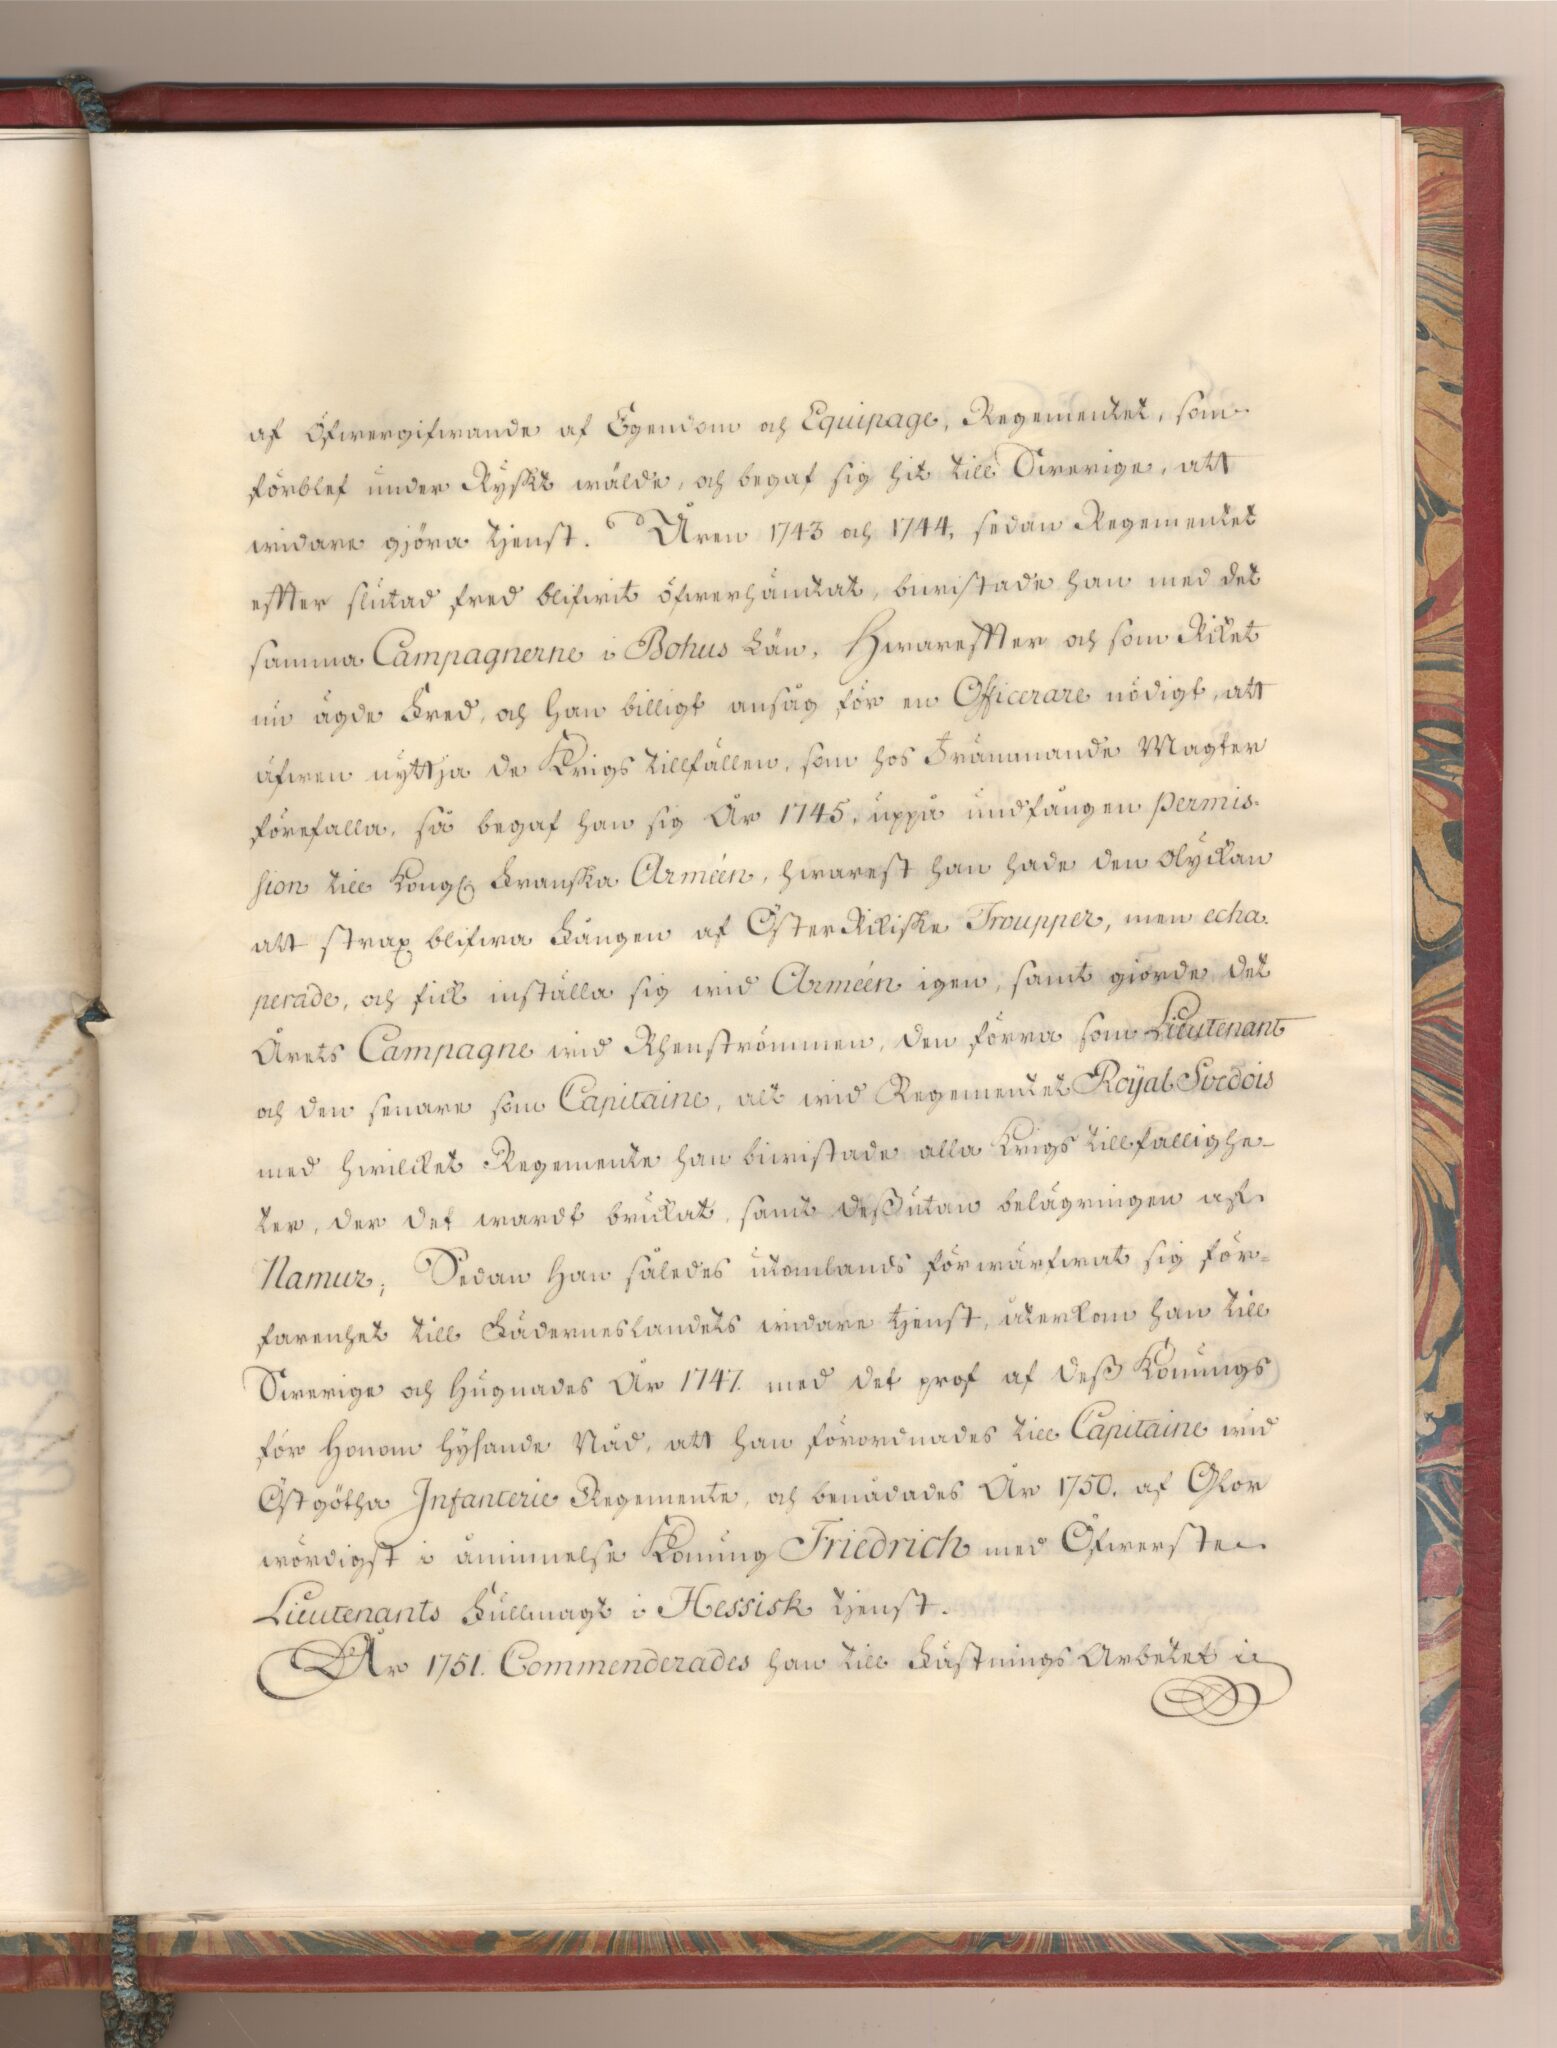 af öfwergifwande af Egendom och Equipage, Regementet, som
förblef under Ryskt wälde, och begaf sig hit till Swerige, att
widare gjöra tjenst. Åren 1743 och 1744, sedan Regementet
effter slutad fred blifwit öfwerhämtat, biwistade han med det
samma Campagnerne i Bohus Län. Hwareffter och som Riket
nu ägde Fred, och han billigt ansåg för en Officerare nödigt, att
äfwen nyttja de Krigs tillfällen, som hos Främmande Magter
förefalla, så begaf han sig År 1745, uppå undfången permis-
sion till Kongl. Franska Arméen, hwarest han hade den Olyckan
att strax blifwa Fången af Österrikiske Troupper, men echa-
perade, och fick inställa sig wid Arméen igen, samt giorde det
Årets Campagne wid Rhenströmmen, den förra som Lieutenant
och den senare som Capitaine, alt wid Regementet Royal Svedois
med hwilcket Regemente han biwistade alla Krigs tillfällighe-
ter, der det wardt brukat, samt dessutan belägringen af
Namur; Sedan Han således utomlands förwärfwat sig för-
farenhet till Fäderneslandets widare tjenst, återkom han till
Swerige och hugnades År 1747. med det prof af dess Konungs
för Honom hysande Nåd, att han förordnades till Capitaine wid
Östgötha Infanterie Regemente, och benådades År 1750. af Glor
wördigst i åminnelse Konung Friedrich med Öfwerste
Lieutenants Fullmagt i Hessisk tjenst.
År 1751. Commenderades han till Fästnings Arbetet i